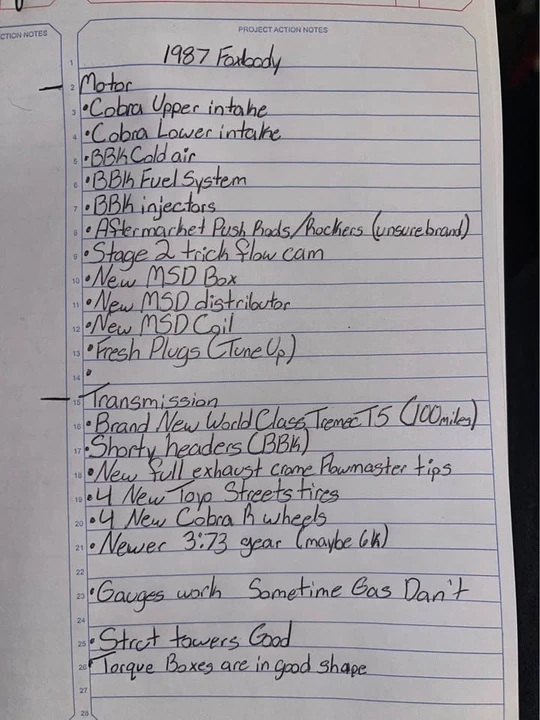 CTION NOTES
PROJECT ACTION NOTES
1
1987 Foxbody
2 Motor
3 •Cobra Upper intake
4 •Cobra Lower intake
5 •BBK Cold air
6 •BBK Fuel System
7 •BBK injectors
8 •Aftermarket Push Rods/Rockers (unsure brand)
9 •Stage 2 trick flow cam
10 •New MSD Box
11 •New MSD distributor
12 •New MSD Coil
13 •Fresh Plugs (Tune Up)
14 •
15 Transmission
16 •Brand New World Class Tremec T5 (100 miles)
17 •Shorty headers (BBK)
18 •New full exhaust crome Flowmaster tips
19 •4 New Toyo Streets tires
20 •4 New Cobra R wheels
21 •Newer 3:73 gear (maybe 6k)
22
23 •Gauges work Sometime Gas Don't
24
25 •Strct towers Good
26 •Torque Boxes are in good shape
27
28